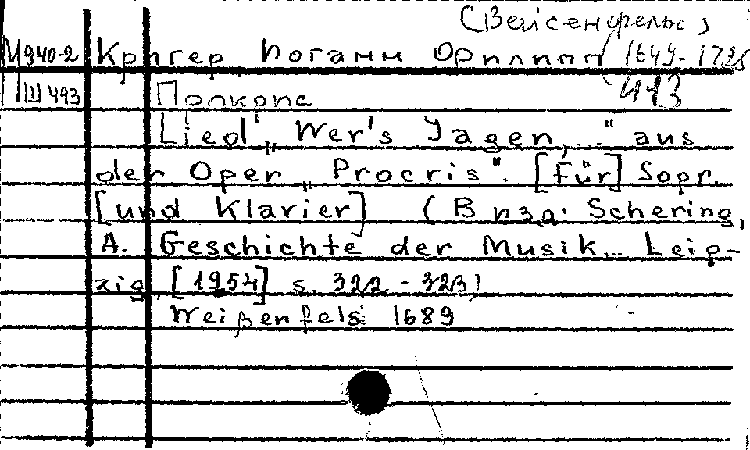 (Вейсенфельс)
М940-2 Кригер, Иоганн Филипп 1649-1725
III 493 Прокрис 493
Lied „Wer's Jagen," aus
der Oper „Procris". [Für] Sopr.
[und Klavier] (В изд: Schering,
A. Geschichte der Musik.. Leip-
zig, [1954] s. 322-323)
Weißenfels 1689